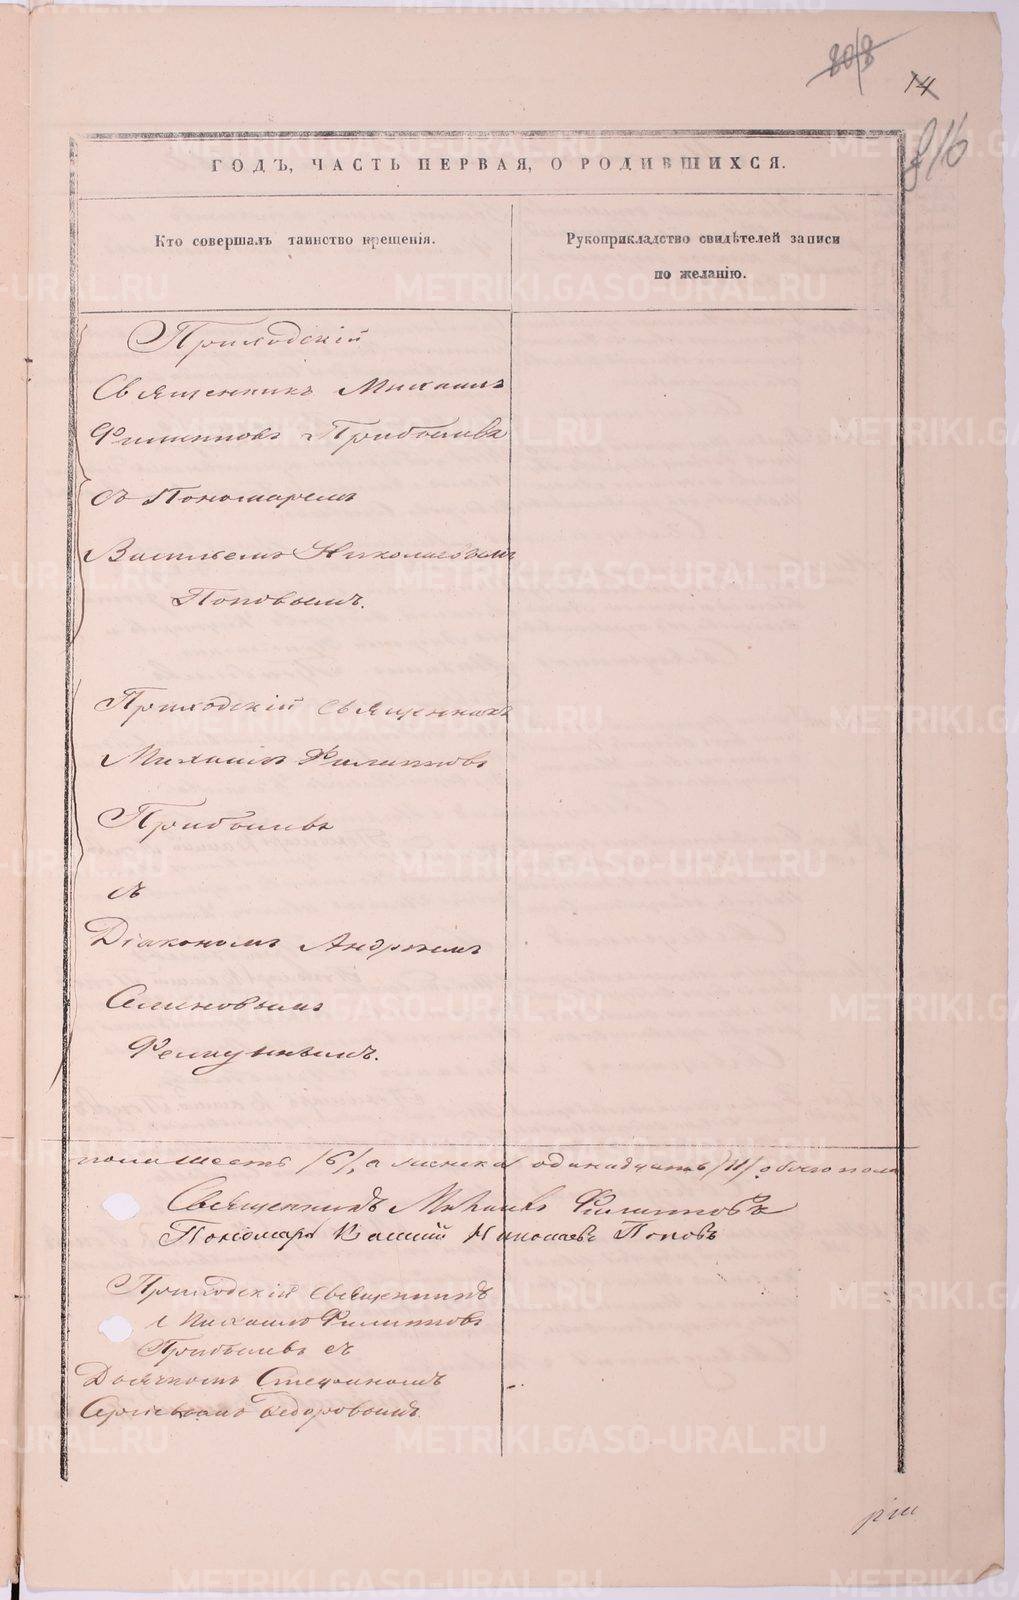 14
816
ГОДЪ, ЧАСТЬ ПЕРВАЯ, О РОДИВШИХСЯ.
Кто совершалъ таинство крещенія.
Рукоприкладство свидѣтелей записи
по желанію.
Приходскій
Священникъ Михаилъ
Филипповъ Прибылевъ
съ Пономаремъ
Василіемъ Николаевымъ
Поповымъ.
Приходскій Священникъ
Михаилъ Филипповъ
Прибылевъ
съ
Діакономъ Андреемъ
Семеновымъ
пола шесть /6/, а женска одинадцать /11/ обоего пола
Священникъ Михаилъ Филипповъ
Пономарь Василій Николаевъ Поповъ
Приходскій священникъ
Михаилъ Филипповъ
Прибылевъ съ
Дьячкомъ Стефаномъ
Сергіевымъ Федоровымъ
METRIKI.GASO-URAL.RU